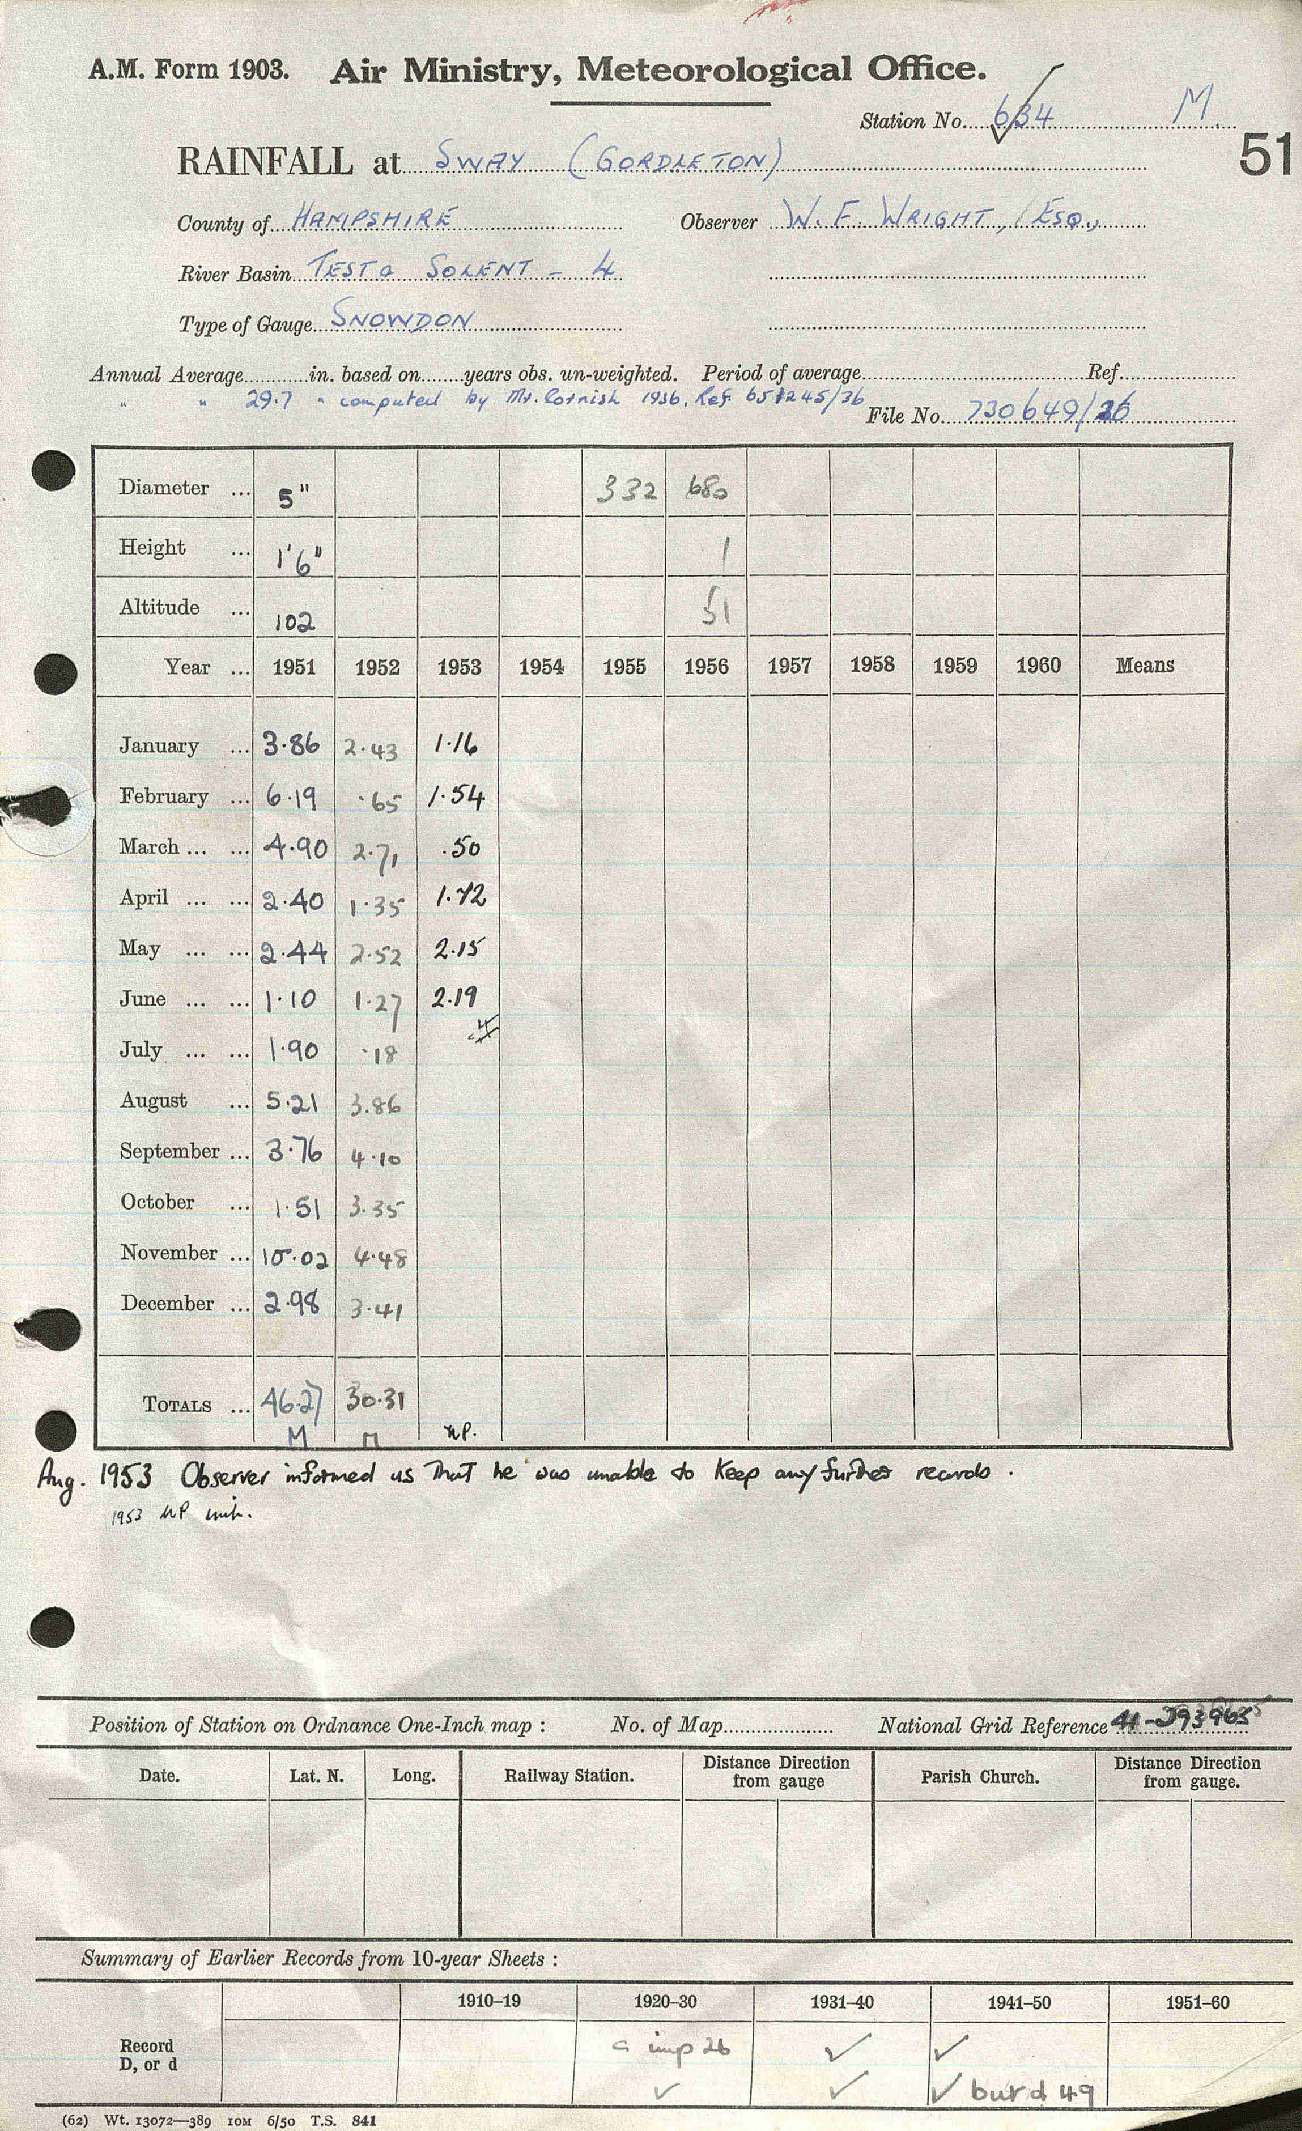 A.M. Form 1903. Air Ministry, Meteorological Office.
Station No. 634 M.
51
RAINFALL at SWAY (GORDLETON)
County of HAMPSHIRE Observer W. F. WRIGHT, ESQ.,
River Basin TEST a SOLENT - 4
Type of Gauge SNOWDON
Annual Average in. based on years obs. un-weighted. Period of average Ref.
" " 29.7 " computed by Mr. Cornish 1936. Ref
File No. 730649/36
Diameter ... 5" 332 680
Height ... 1'6" 1
Altitude ... 102 51
Year ... 1951 1952 1953 1954 1955 1956 1957 1958 1959 1960 Means
January ... 3.86 2.43 1.16
February ... 6.19 .65 1.54
March ... ... 4.90 2.71 .50
April ... ... 2.40 1.35 1.72
May ... ... 2.44 2.52 2.15
June ... ... 1.10 1.27 2.19
July ... ... 1.90 .18
August ... 5.21 3.86
September ... 3.76 4.10
October ... 1.51 3.35
November ... 10.02 4.48
December ... 2.98 3.41
TOTALS ... 46.27 30.31
M M NP.
Aug. 1953 Observer informed us that he was unable to keep any further records .
1953 NP
Position of Station on Ordnance One-Inch map : No. of Map National Grid Reference 41-293965
Date. Lat. N. Long. Railway Station. Distance Direction from gauge Parish Church. Distance Direction from gauge.
Summary of Earlier Records from 10-year Sheets :
1910–19 1920–30 1931–40 1941–50 1951–60
Record imp 26 ✓ ✓
D, or d ✓ ✓ ✓ but d 49
(62) Wt. 13072—389 10M 6/50 T.S. 841